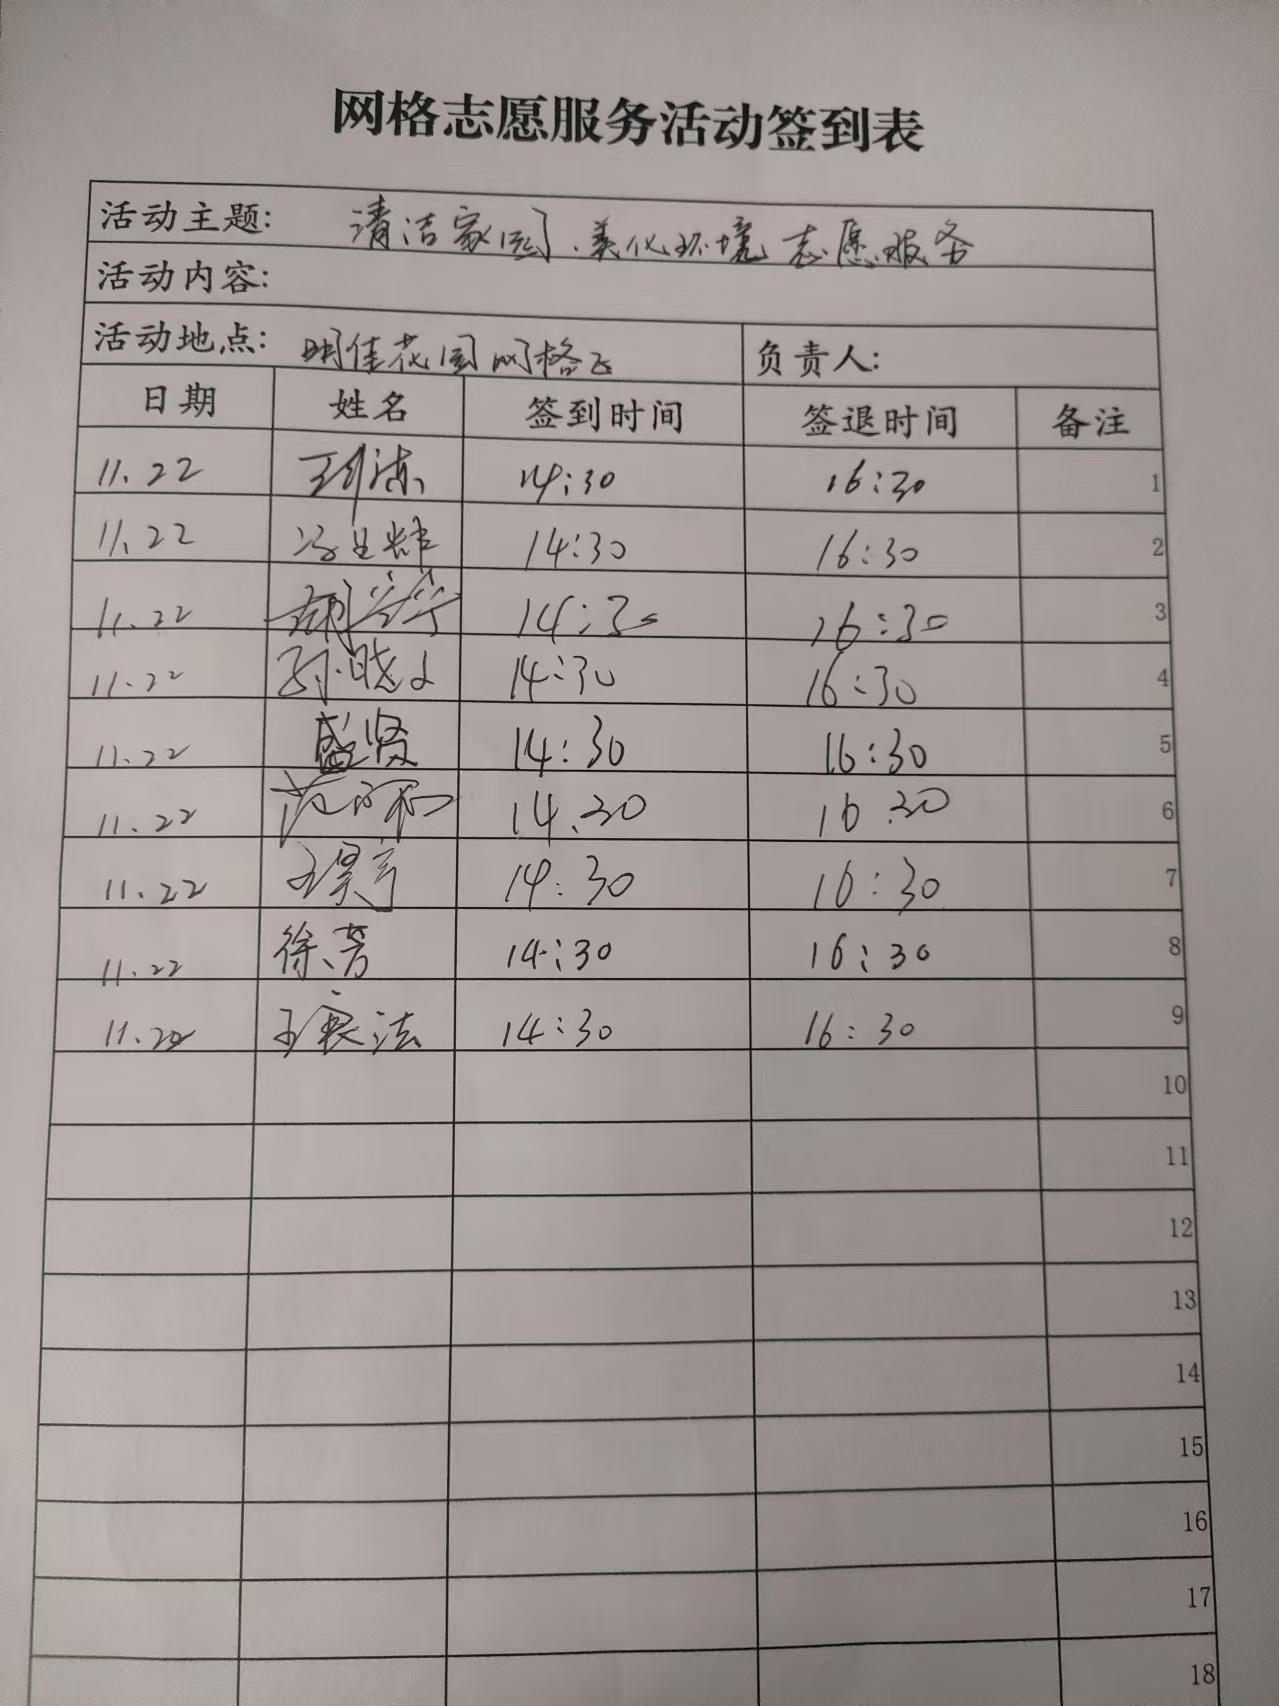 网格志愿服务活动签到表
活动主题: 清洁家园、美化环境志愿服务
活动内容:
活动地点: 明佳花园网格 负责人:
日期 姓名 签到时间 签退时间 备注
11.22 14:30 16:30 1
11.22 14:30 16:30 2
11.22 14:30 16:30 3
11.22 孙晓 14:30 16:30 4
11.22 盛贤 14:30 16:30 5
11.22 14.30 16.30 6
11.22 王昊 14:30 16:30 7
11.22 徐芳 14:30 16:30 8
11.22 王 法 14:30 16:30 9
10
11
12
13
14
15
16
17
18